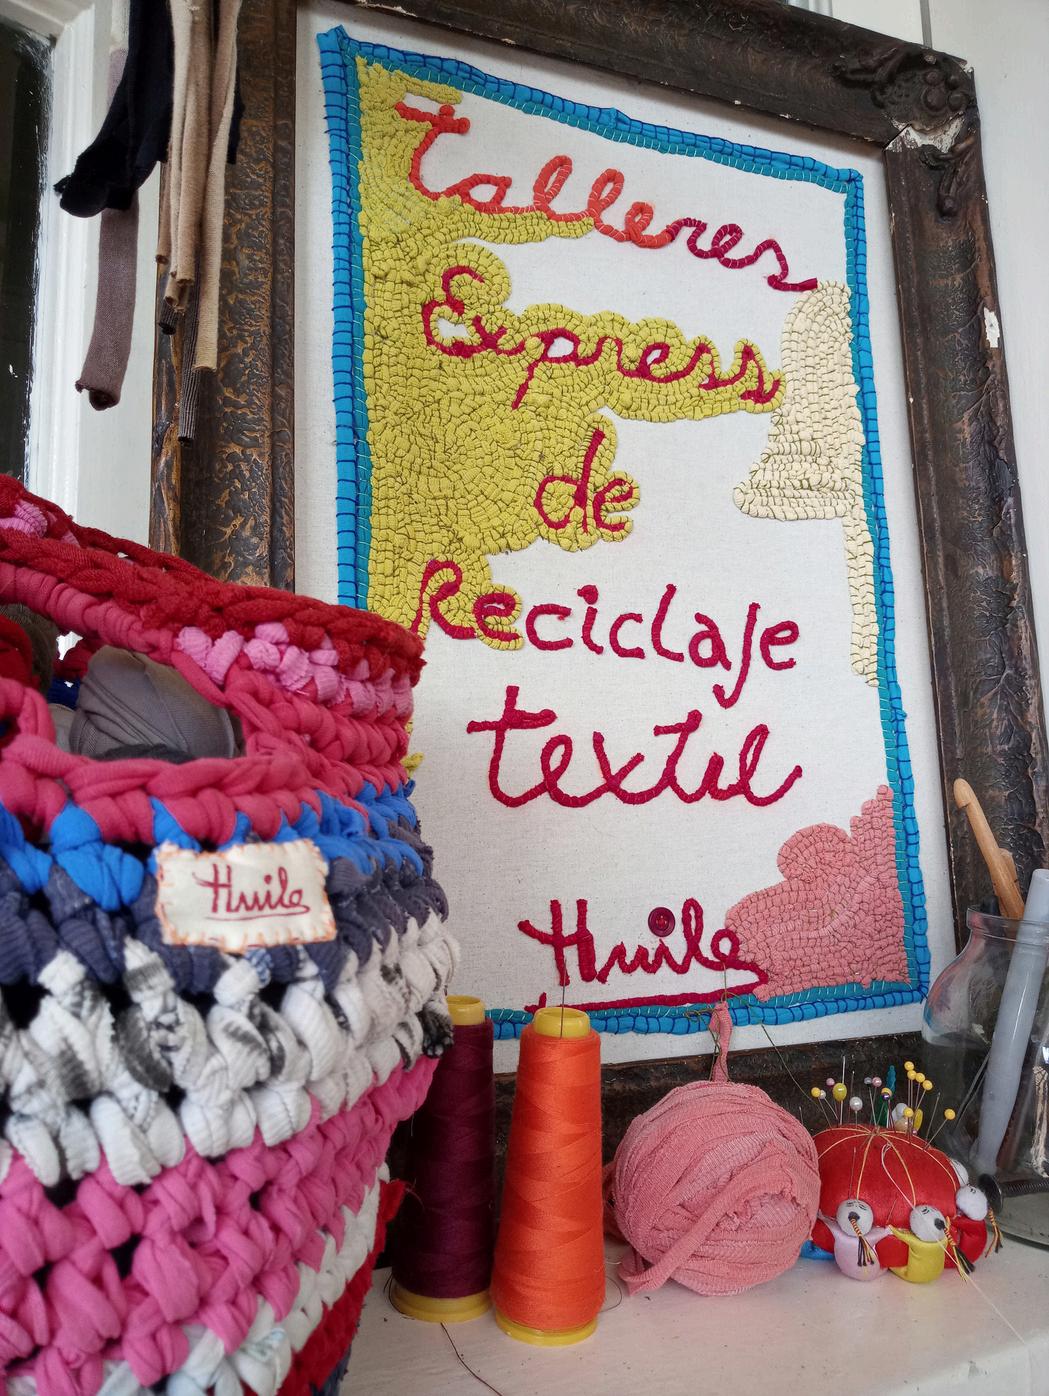 talleres
Express
de
Reciclaje
textil
Huile
Huile